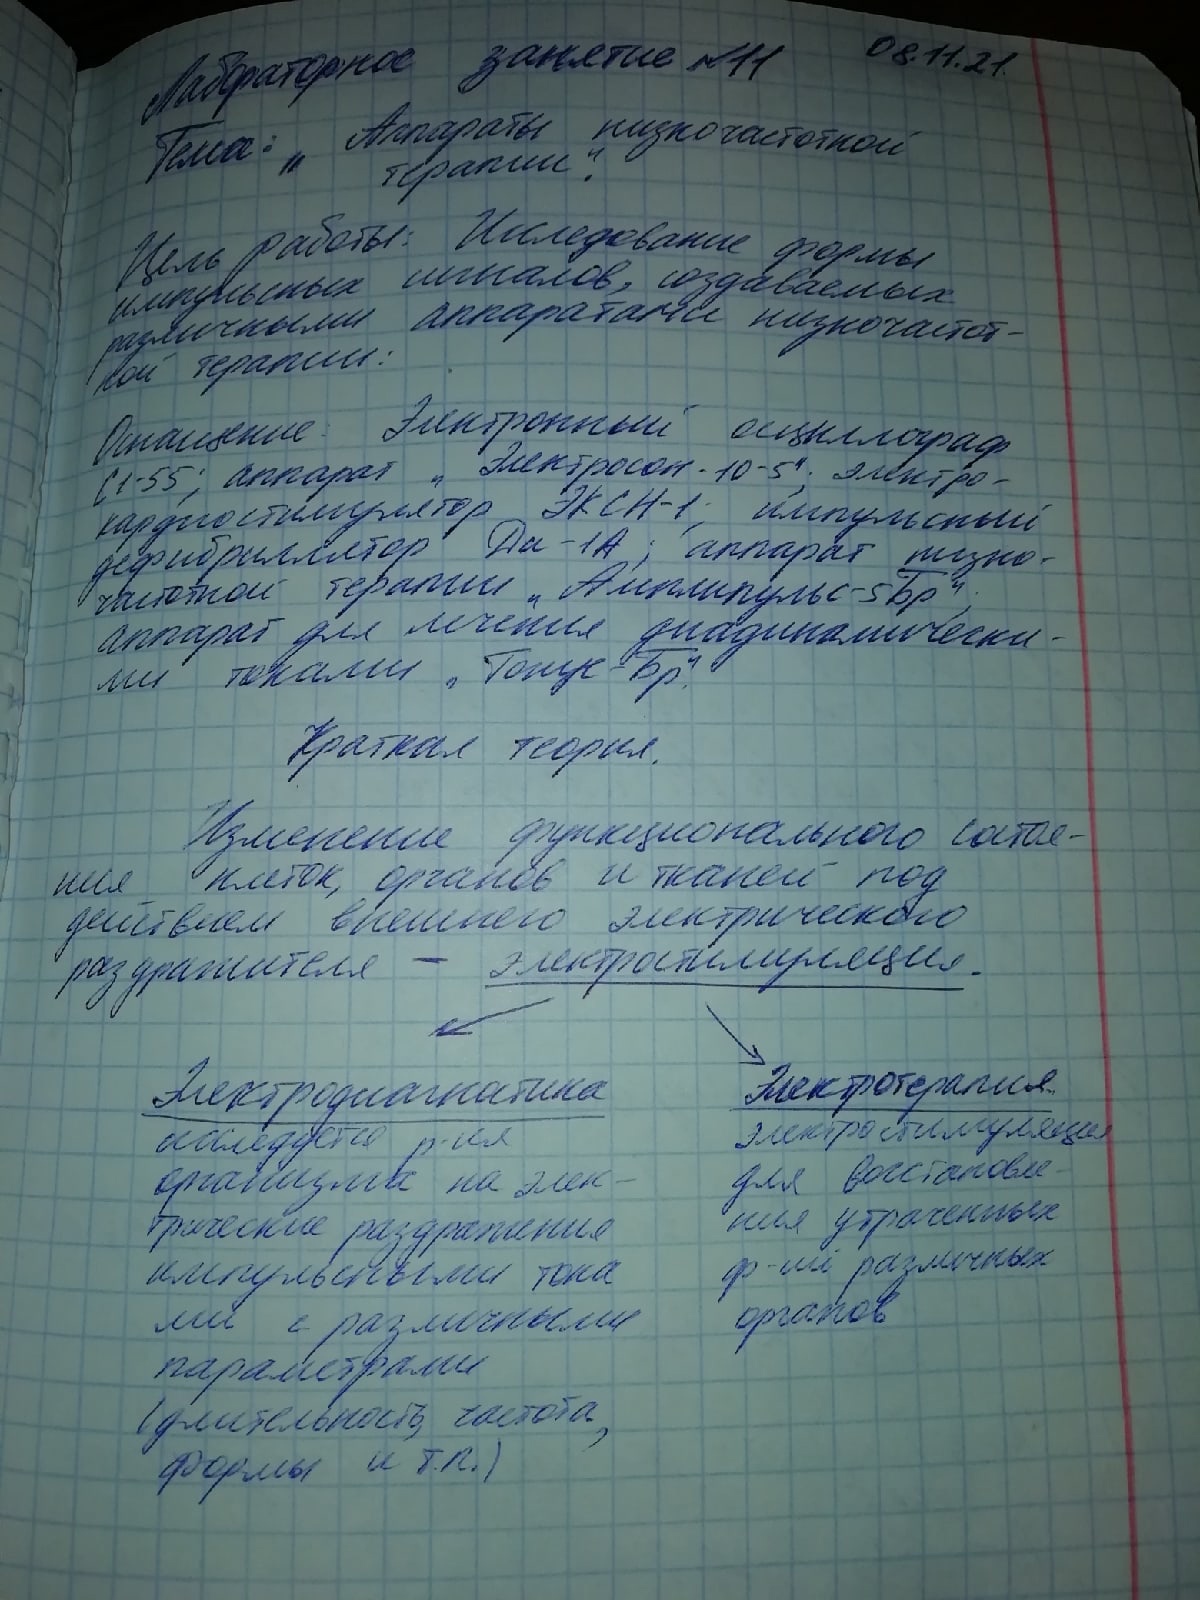 Лабораторное занятие №11 08.11.21.
Тема: „Аппараты низкочастотной
терапии".
Цель работы: Исследование формы
импульсных сигналов, создаваемых
различными аппаратами низкочастот-
ной терапии:
Оснащение: Электронный осциллограф
С1-55; аппарат „Электросон-10-5"; электро-
кардиостимулятор ЭКСН-1; импульсный
дефибриллятор Ди-1А; аппарат низко-
частотной терапии „Амплипульс-5Бр";
аппарат для лечения диадинамически-
ми токами „Тонус-Бр".
Краткая теория.
Изменение функционального состоя-
ния клеток, органов и тканей под
действием внешнего электрического
раздражителя – электростимуляция.
Электродиагностика
исследуется р-ия
организма на элек-
трические раздражения
импульсными тока
ми с различными
параметрами
(длительность, частота,
формы и т.п.)
Электротерапия
электростимуляция
для восстановле-
ния утраченных
ф-ий различных
органов